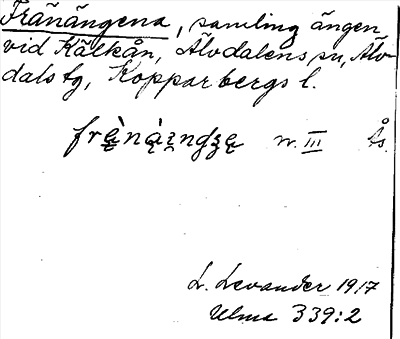 Frånängena, samling ängar
vid Kälkån, Älvdalens sn, Älv-
dals tg, Kopparbergs l.
n. III Ås.
L. Levander 1917
Ulma 339:2